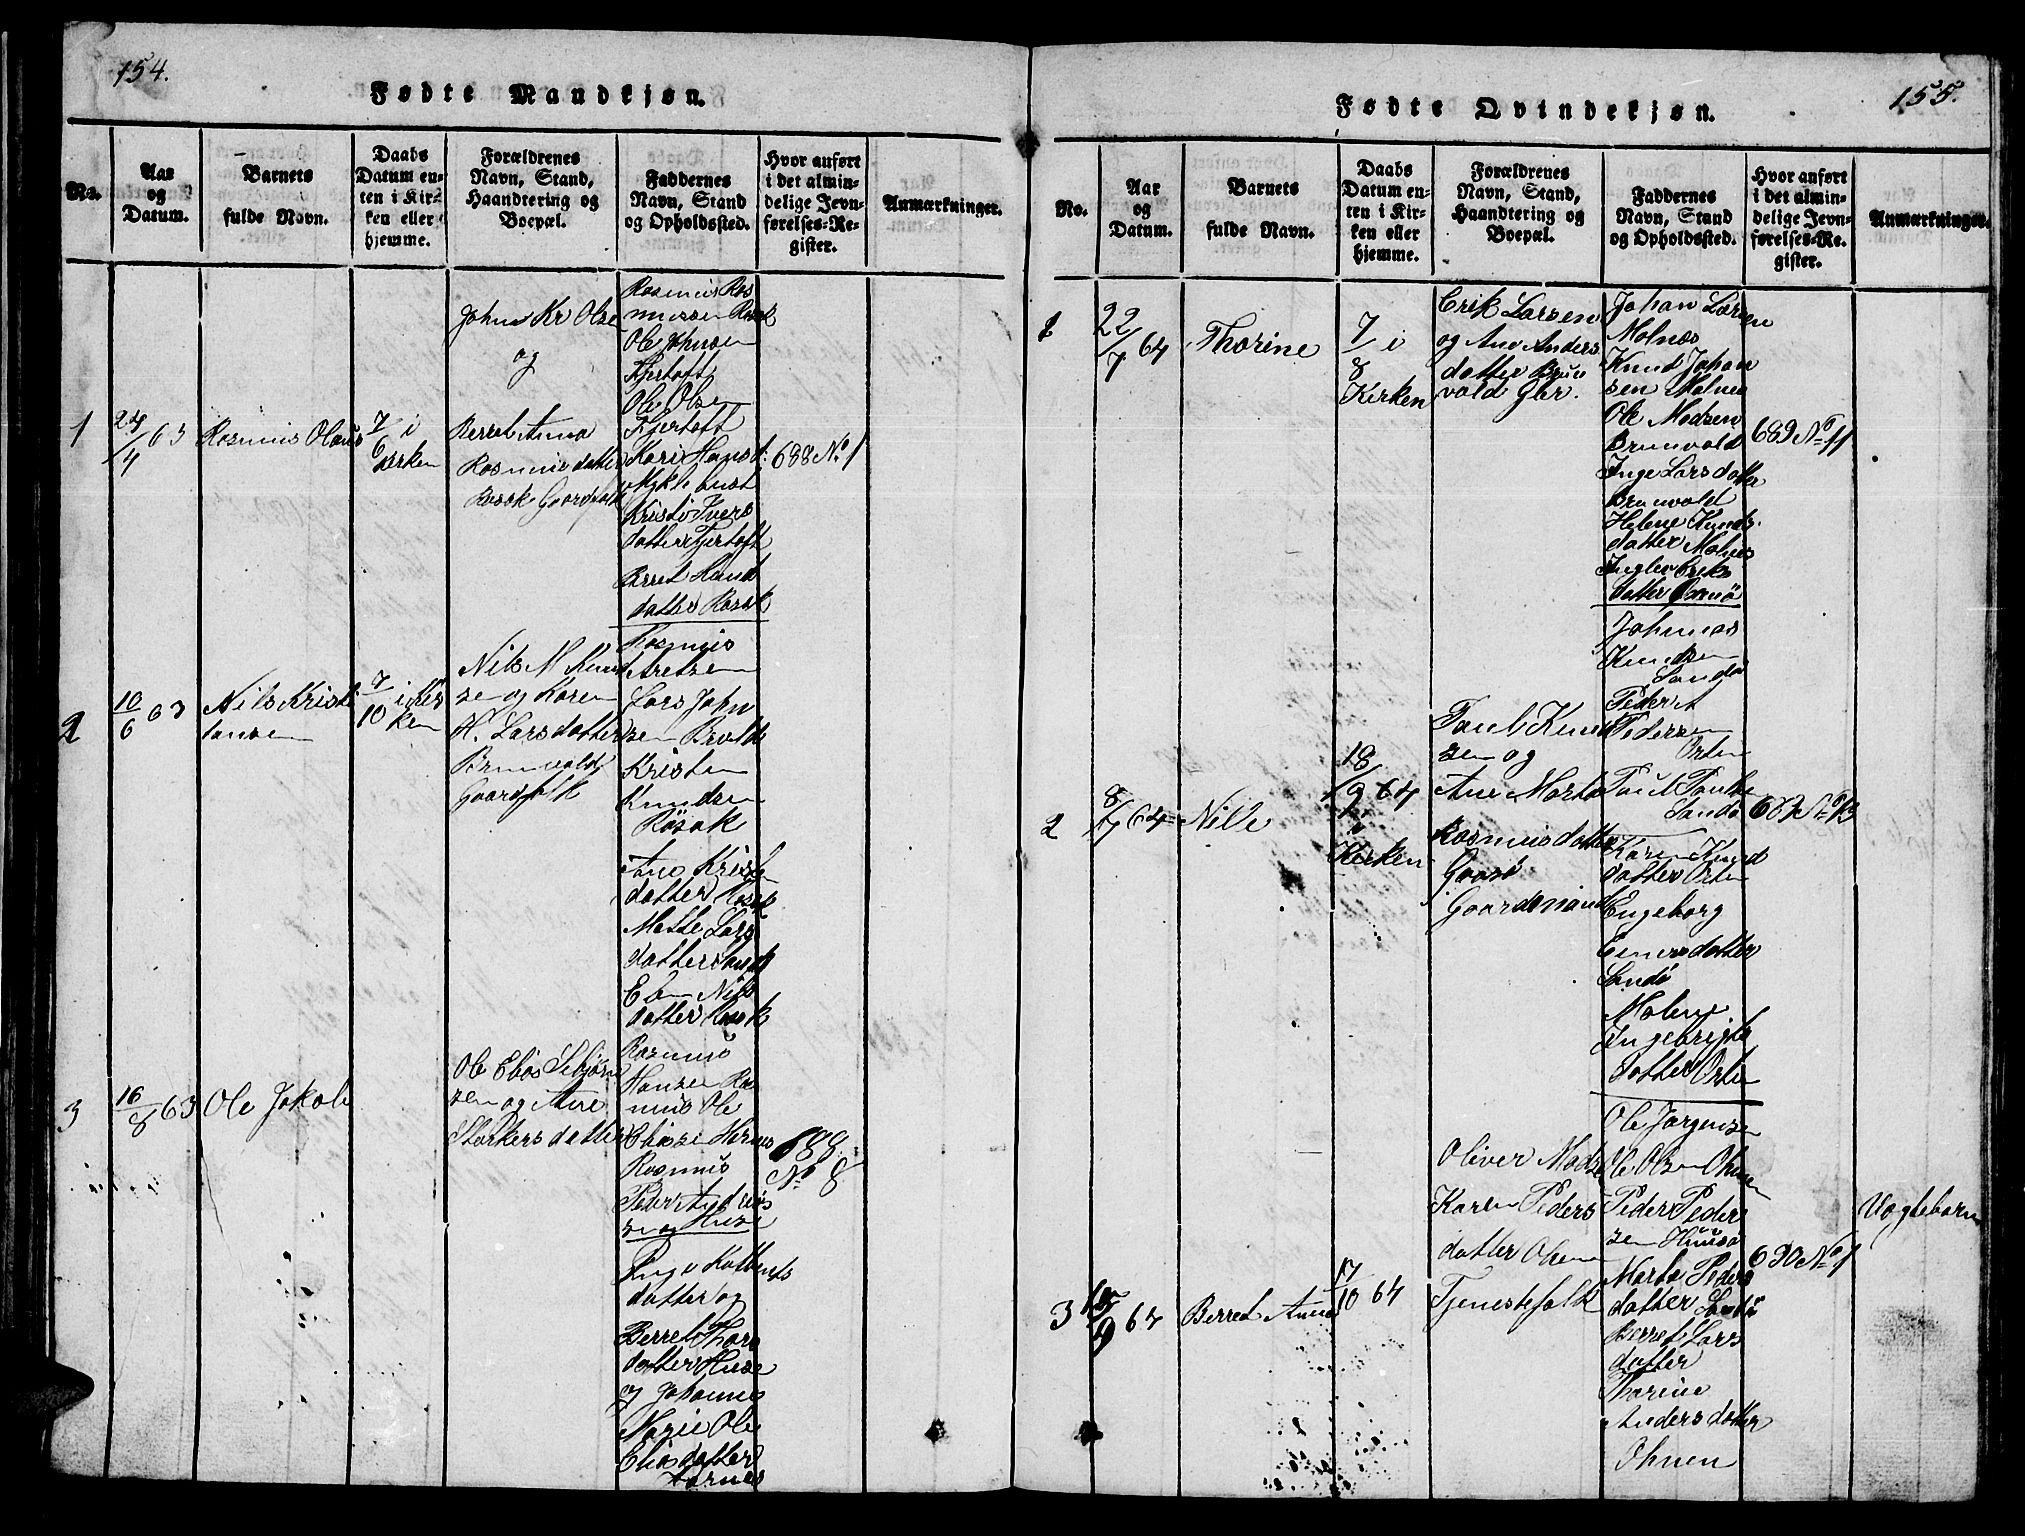 154.
Fødte Mandkjøn.
No.
Aar
og
Datum.
Barnets
fulde Navn.
Daabs
Datum en-
ten i Kir-
ken eller
hjemme.
Forældrenes
Navn, Stand,
Haandtering og
Boepæl.
Faddernes
Navn, Stand
og Opholdssted.
Hvor anført
i det almin-
delige Jevn-
førelses-Re-
gister.
Anmærkninger.
1
24/4 63
Rasmus Olaus
7/6 i
Kirken
John Kr Olse
og
Berret Anna
Rasmusdatter
Røsok Gaardfolk
Rasmus Ras
mussen Røsok
Ole Johnsen
Fjertoft
Ole Olsen
Fjertoft
Kari Hansd:
Myklebust
Kristi Ivers
datter Fjertoft
Beret Hans
datter Røsok
688 No 1
2
10/6 63
Nils Kristi
ansen
7/10 i Kir
ken
Nils M Knud
sen og Karen
H. Larsdatter
Brunvold
Gaardfolk
Rasmus
Aretsen
Lars John
sen Bruvold
Kristen
Knudsen
Røsok
Ane Krist
datter Røsok
Mette Lars
datter Sand
Elen Nils
datter Røsok
3
16/8 63
Ole Jakob
Ole Elias
sen og Ane
Storkersdatter
Rasmus
Hansen Ras
mus Ole
Eliasen Harnes
Rasmus
Peter Andreas
sen og Huse
Inge
datter og
Berret Thore
datter Huse
og Johanne
Marie Ole
Eliasdatter
Harnes
688
No 8
155.
Fødte Qvindekjøn.
No.
Aar
og
Datum.
Barnets
fulde Navn.
Daabs
Datum en-
ten i Kir-
ken eller
hjemme.
Forældrenes
Navn, Stand,
Haandtering og
Boepæl.
Faddernes
Navn, Stand
og Opholdssted.
Hvor anført
i det almin-
delige Jevn-
førelses-Re-
gister.
Anmærkninger.
1
22/7 64
Thorine
7/8 i
Kirken
Erik Larsen
og Ane Anders
datter Brun
vold Gbr.
Johan Larsen
Molnes
Knud Johan
sen Molnes
Ole Madsen
Brunvold
Inge Larsdatter
Brunvold
Helene Knuds
datter Molnes
datter
689 No 11
2
8/7 64
Nille
18/9 64
i
Kirken
Poul Knud
sen og
Ane Marta
Rasmusdatter
Gaasø
Gaardmand
Johannes
Knudsen
Sandø
Peder
Pedersen
Orten
Poul Poulse
Sandø
Karen Knud
datter Orten
Engeborg
Einersdatter
Sandø
Malene
Ingebrigts
datter Orten
3
15/9 64
Berret Anne
17/10 64
Oliver Madse
Karen Peders
datter Ohnen
Tjenestefolk
Ole Jørgensen
Ole Olsen Ohnen
Peder Peder
sen Husø
Marta Peders
datter Sandø
Berret Lars
datter
Thorine
Andersdatter
Ohnen
690 No 1
Uægteborn